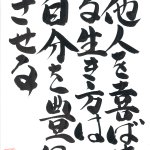 他人を喜ばす
る生き方は
自分を豊に
させる